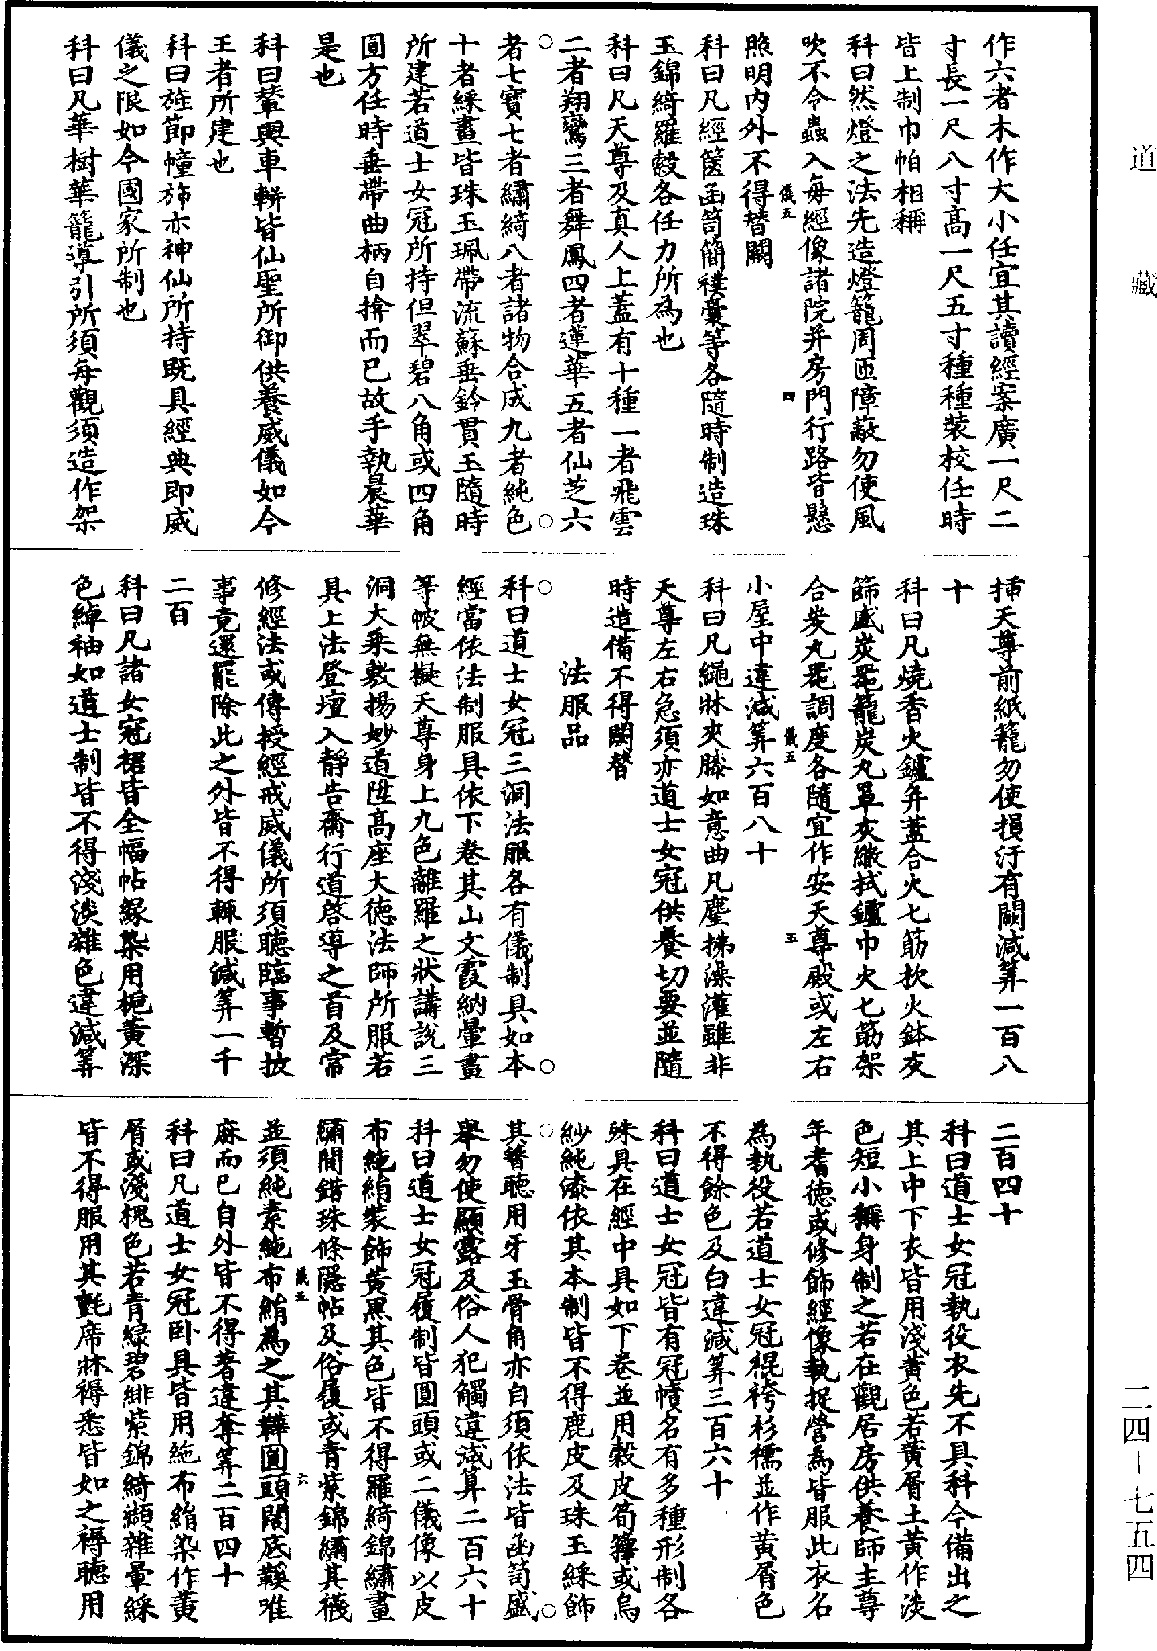 道藏
作六者木作大小任宜其讀經案廣一尺二
寸長一尺八寸高一尺五寸種種裝校任時
皆上制巾帕相稱
科曰然燈之法先造燈籠周匝障蔽勿使風
吹不令蟲入每經像諸院并房門行路皆懸
儀五 四
照明內外不得替闕
科曰凡經篋函笥簡襆囊等各隨時制造珠
玉錦綺羅縠各任力所為也
科曰凡天尊及真人上蓋有十種一者飛雲
二者翔鸞三者舞鳳四者蓮華五者仙芝六
者七寶七者繡綺八者諸物合成九者純色
十者綵畫皆珠玉珮帶流蘇垂鈴貫玉隨時
所建若道士女冠所持但翠碧八角或四角
圓方任時垂帶曲柄自擔而已故手執晨華
是也
科曰輦輿車軿皆仙聖所御供養威儀如今
王者所建也
科曰旌節幢旆亦神仙所持既具經典即威
儀之限如今國家所制也
科曰凡華樹華籠導引所須每觀須造作架
插天尊前紙籠勿使損汙有闕減筭一百八
十
科曰凡燒香火鑪并蓋合火七筯杴火鉢灰
篩盛炭㽅籠炭丸罩灰繖拭鑪巾火七筯架
合炭丸㽅調度各隨宜作安天尊殿或左右
儀五 五
小屋中違減筭六百八十
科曰凡繩牀夾膝如意曲几麈拂澡灌雖非
天尊左右急須亦道士女冠供養切要並隨
時造備不得闕替
法服品
科曰道士女冠三洞法服各有儀制具如本
經當依法制服具依下卷其山文霞納暈畫
等帔無擬天尊身上九色離羅之狀講說三
洞大乘敷揚妙道陞高座大德法師所服若
具上法登壇入靜告齋行道啓導之首及常
修經法或傳授經戒威儀所須聽臨事暫披
事竟還罷除此之外皆不得輒服減筭一千
二百
科曰凡諸女冠裙皆全幅帖緣染用梔黃深
色綽袖如道士制皆不得淺淡雜色違減筭
二百四十
科曰道士女冠執役衣先不具科今備出之
其上中下衣皆用淺黃色若黃屑土黃作淡
色短小稱身制之若在觀居房供養師主尊
年耆德或修飾經像執捉營為皆服此衣名
為執役若道士女冠裩袴衫襦並作黃屑色
不得餘色及白違減筭三百六十
科曰道士女冠皆有冠幘名有多種形制各
殊具在經中具如下卷並用縠皮筍籜或烏
紗純漆依其本制皆不得鹿皮及珠玉綵飾
其簪聽用牙玉骨角亦自須依法皆函笥盛
舉勿使顯露及俗人犯觸違減筭二百六十
科曰道士女冠履制皆圓頭或二儀像以皮
布絁絹裝飾黃黑其色皆不得羅綺錦繡畫
繡間錯珠條隱帖及俗履或青紫錦繡其襪
儀五 六
並須純素絁布絹為之其韡圓頭闊底鞵唯
麻而已自外皆不得著違奪筭二百四十
科曰凡道士女冠卧具皆用絁布絹染作黃
屑或淺槐色若青綠碧緋紫錦綺纈雜暈綵
皆不得服用其氈席牀褥悉皆如之褥聽用
二四－七五四